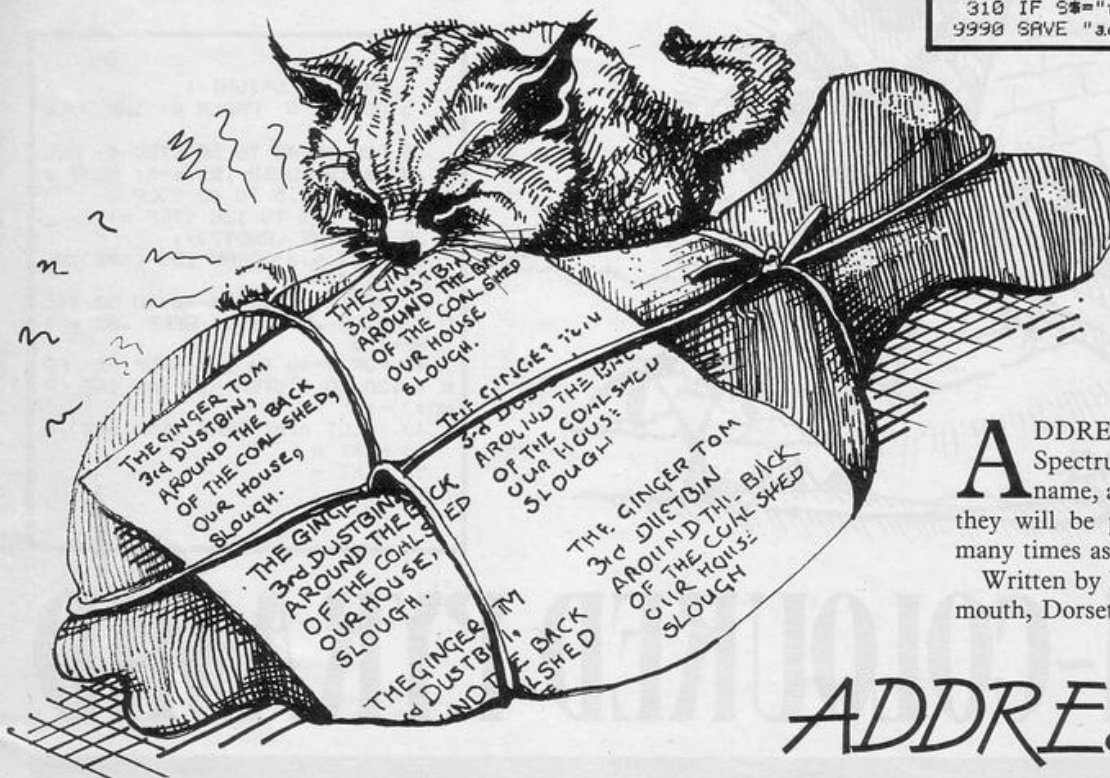 310 IF S$="
9990 SAVE "
THE GIN
3rd DUSTBIN
AROUND THE BAC
OF THE COAL SHED
OUR HOUSE
SLOUGH.
THE GINGER TOM
3rd DUSTBIN,
AROUND THE BACK
OF THE COAL SHED,
OUR HOUSE,
SLOUGH.
THE GINGER
3rd
AROUND THE
OF THE COALSHED
OUR HOUSE
SLOUGH
CK
ED
THE GINGE
3rd DUSTBIN
AROUND THE
OF THE COAL
OUR HOUSE,
SLOUGH.
THE GINGER TOM
3rd DUSTBIN
AROUND THE BACK
OF THE COAL SHED
OUR HOUSE
SLOUGH
THE GINGER TM
d DUSTBI,
UND T BACK
LSHED
ADDRE
Spectru
name, a
they will be
many times as
Written by
mouth, Dorset
ADDRE
COLOURED